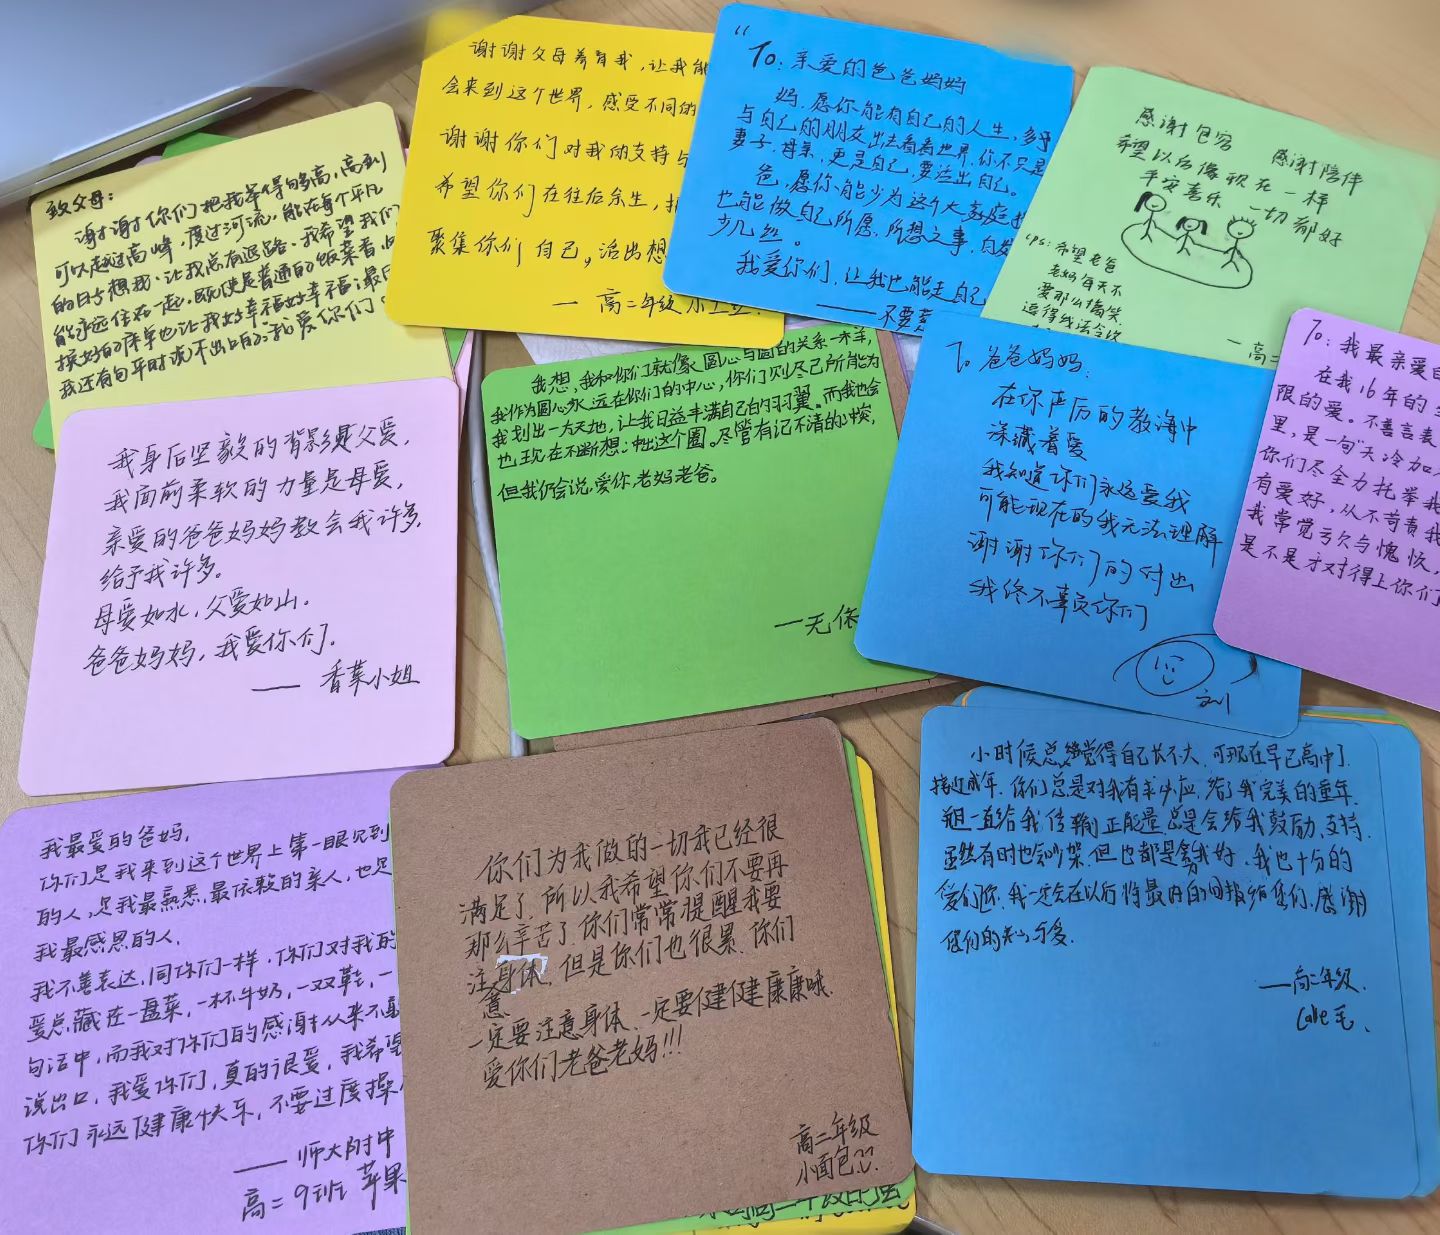 致父母：
谢谢你们把我举得够高，高到
可以越过高峰，度过河流，能在每个平凡
的日子想我、让我总有退路。我希望我们
能永远住在一起，既使是普通的饭菜香
我还有句平时说不出口的：我爱你们
谢谢父母养育我，让我能
会来到这个世界，感受不同的
谢谢你们对我的支持与
希望你们在往后余生，
聚集你们自己，活出想
— 高二年级
“
To：亲爱的爸爸妈妈
妈，愿你能有自己的人生，多
与自己的朋友出去看看世界，你不只是
妻子，母亲，更是自己，要活出自己。
爸，愿你能少为这个大家庭
也能做自己所愿，所想之事，白发
少几丝。
我爱你们，让我也能走自己
——不要
感谢包容 感谢陪伴
希望以后像现在一样
平安喜乐 一切都好
PS：希望老爸
老妈每天不
要那么搞笑
逗得我法令纹
— 高二
我身后坚毅的背影是父爱，
我面前柔软的力量是母爱，
亲爱的爸爸妈妈教会我许多，
给予我许多。
母爱如水，父爱如山。
爸爸妈妈，我爱你们。
—— 香菜小姐
我想，我和你们就像圆心与圆的关系一样，
我作为圆心永远在你们的中心，你们则尽己所能为
我划出一大天地，让我日益丰满自己的羽翼。而我也会
也现在不断想冲出这个圆。尽管有记不清的冲突，
但我仍会说，爱你，老妈老爸。
—无
To 爸爸妈妈：
在你严厉的教诲中
深藏着爱
我知道你们永远爱我
可能现在的我无法理解
谢谢你们的付出
我终不辜负你们
刘
To：我最亲爱的
在我16年的生
限的爱。不善言表
里，是一句“天冷加
你们尽全力托举我
有爱好，从不苛责我
我常觉亏欠与愧疚，
是不是才对得上你们
我最爱的爸妈，
你们是我来到这个世界上第一眼见到
的人，是我最熟悉，最依赖的亲人，也是
我最感恩的人。
我不善表达，同你们一样，你们对我的
爱总藏在一盘菜，一杯牛奶，一双鞋，一
句话中，而我对你们的感谢从来不
说出口，我爱你们，真的很爱，我希望
你们永远健康快乐，不要过度操
—— 师大附中
高二9班 苹果
你们为我做的一切我已经很
满足了，所以我希望你们不要再
那么辛苦了，你们常常提醒我要
注意身体，但是你们也很累，你们
一定要注意身体，一定要健健康康哦，
爱你们老爸老妈!!!
高二年级
小面包
小时候总觉得自己长不大，可现在早已高中了，
接近成年，你们总是对我有求必应，给了我完美的童年，
一直给我传输正能量，总是会给我鼓励，支持，
虽然有时也会吵架，但也都是为我好，我也十分的
爱你们，我一定会在以后将最好的回报给你们，感谢
您们的关心与爱。
——高二年级，
Cake毛、